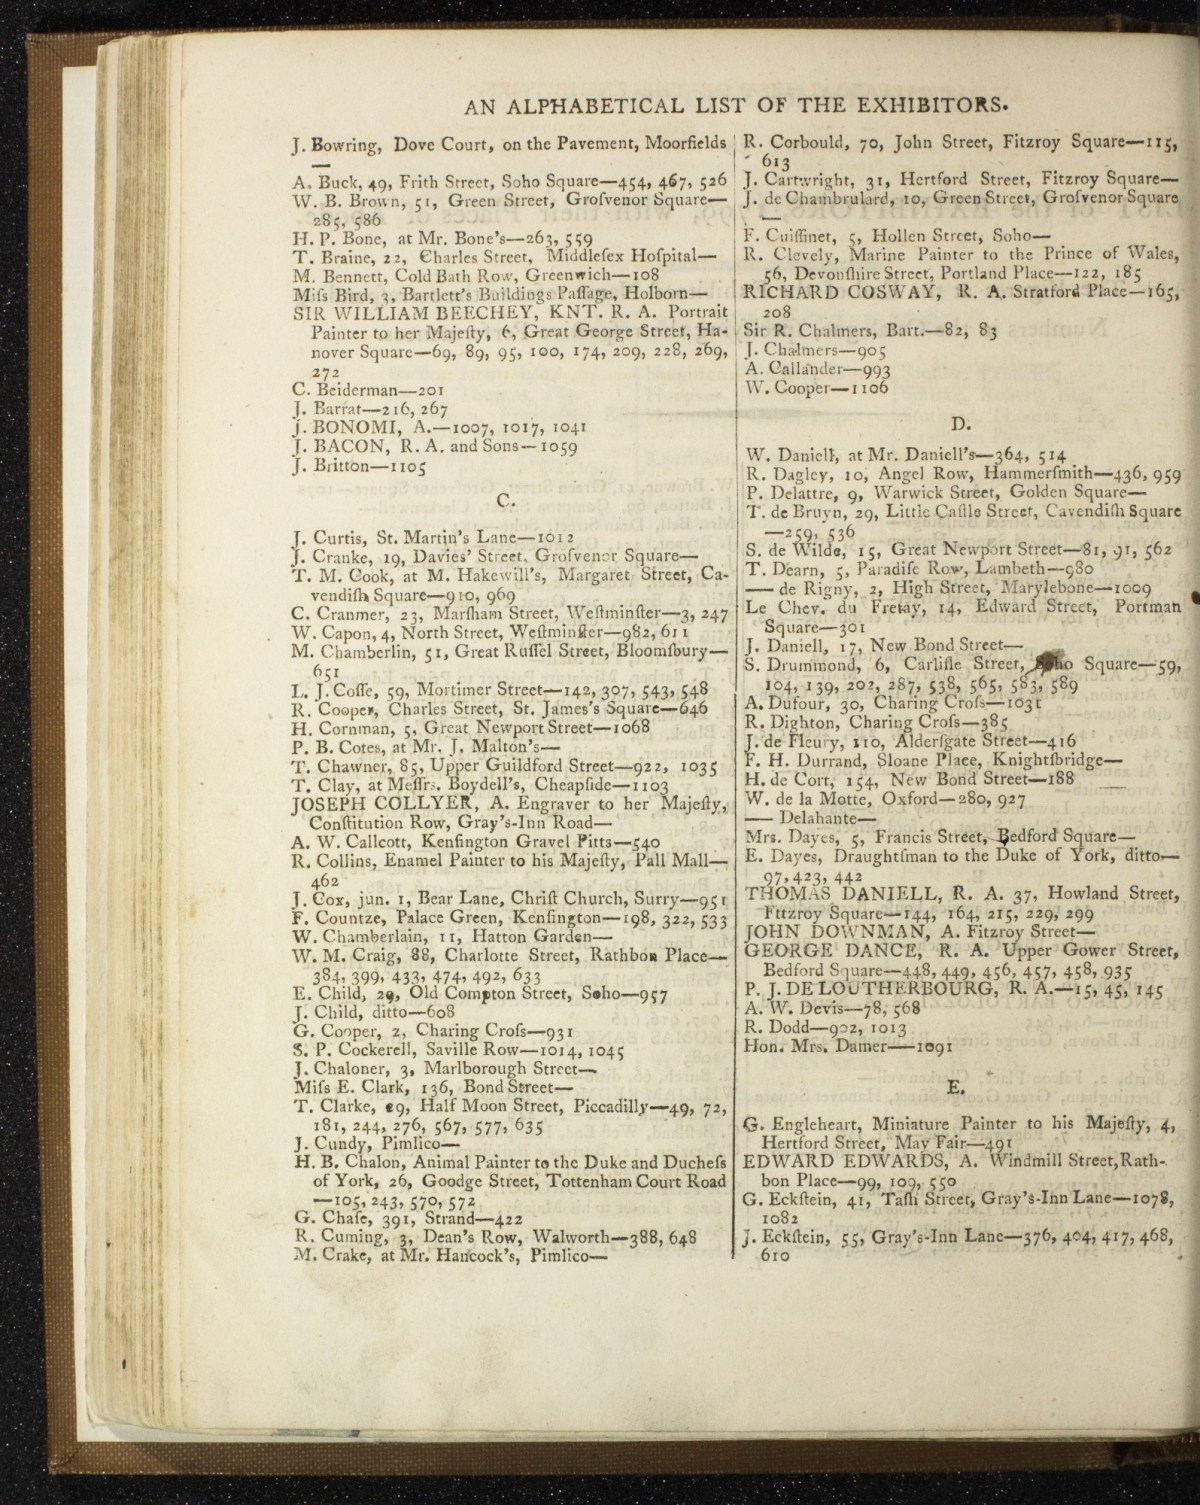 AN ALPHABETICAL LIST OF THE EXHIBITORS.
J. Bowring, Dove Court, on the Pavement, Moorfields
—
A. Buck, 49, Frith Street, Soho Square—454, 467, 526
W. B. Brown, 51, Green Street, Groſvenor Square—
285, 586
H. P. Bone, at Mr. Bone's—263, 559
T. Braine, 22, Charles Street, Middleſex Hoſpital—
M. Bennett, Cold Bath Row, Greenwich—108
Miſs Bird, 3, Bartlett's Buildings Paſſage, Holborn—
SIR WILLIAM BEECHEY, KNT. R. A. Portrait
Painter to her Majeſty, 6, Great George Street, Ha-
nover Square—69, 89, 95, 100, 174, 209, 228, 269,
272
C. Beiderman—201
J. Barrat—216, 267
J. BONOMI, A.—1007, 1017, 1041
J. BACON, R. A. and Sons—1059
J. Britton—1105
C.
J. Curtis, St. Martin's Lane—1012
J. Cranke, 19, Davies' Street, Groſvenor Square—
T. M. Cook, at M. Hakewill's, Margaret Street, Ca-
vendiſh Square—910, 969
C. Cranmer, 23, Marſham Street, Weſtminſter—3, 247
W. Capon, 4, North Street, Weſtminſter—982, 611
M. Chamberlin, 51, Great Ruſſel Street, Bloomſbury—
651
L. J. Coſſe, 59, Mortimer Street—142, 307, 543, 548
R. Cooper, Charles Street, St. James's Square—646
H. Cornman, 5, Great Newport Street—1068
P. B. Cotes, at Mr. J. Malton's—
T. Chawner, 85, Upper Guildford Street—922, 1035
T. Clay, at Meſſrs. Boydell's, Cheapſide—1103
JOSEPH COLLYER, A. Engraver to her Majeſty,
Conſtitution Row, Gray's-Inn Road—
A. W. Callcott, Kenſington Gravel Pitts—540
R. Collins, Enamel Painter to his Majeſty, Pall Mall—
462
J. Cox, jun. 1, Bear Lane, Chriſt Church, Surry—951
F. Countze, Palace Green, Kenſington—198, 322, 533
W. Chamberlain, 11, Hatton Garden—
W. M. Craig, 88, Charlotte Street, Rathbon Place—
384, 399, 433, 474, 492, 633
E. Child, 29, Old Compton Street, Soho—957
J. Child, ditto—608
G. Cooper, 2, Charing Croſs—931
S. P. Cockerell, Saville Row—1014, 1045
J. Chaloner, 3, Marlborough Street—
Miſs E. Clark, 136, Bond Street—
T. Clarke, 29, Half Moon Street, Piccadilly—49, 72,
181, 244, 276, 567, 577, 635
J. Cundy, Pimlico—
H. B. Chalon, Animal Painter to the Duke and Ducheſs
of York, 26, Goodge Street, Tottenham Court Road
—105, 243, 570, 572
G. Chaſe, 391, Strand—422
R. Cuming, 3, Dean's Row, Walworth—388, 648
M. Crake, at Mr. Hancock's, Pimlico—
R. Corbould, 70, John Street, Fitzroy Square—115,
613
J. Cartwright, 31, Hertford Street, Fitzroy Square—
J. de Chambrulard, 10, Green Street, Groſvenor Square
—
F. Cuiſſinet, 5, Hollen Street, Soho—
R. Clevely, Marine Painter to the Prince of Wales,
56, Devonſhire Street, Portland Place—122, 185
RICHARD COSWAY, R. A. Stratford Place—165,
208
Sir R. Chalmers, Bart.—82, 83
J. Chalmers—905
A. Callander—993
W. Cooper—1106
D.
W. Daniell, at Mr. Daniell's—364, 514
R. Dagley, 10, Angel Row, Hammerſmith—436, 959
P. Delattre, 9, Warwick Street, Golden Square—
T. de Bruyn, 29, Little Caſtle Street, Cavendiſh Square
—259, 536
S. de Wilde, 15, Great Newport Street—81, 91, 562
T. Dearn, 5, Paradiſe Row, Lambeth—980
—— de Rigny, 2, High Street, Marylebone—1009
Le Chev. du Fretay, 14, Edward Street, Portman
Square—301
J. Daniell, 17, New Bond Street—
S. Drummond, 6, Carliſle Street, Soho Square—59,
104, 139, 202, 287, 538, 565, 583, 589
A. Dufour, 30, Charing Croſs—1031
R. Dighton, Charing Croſs—385
J. de Fleury, 110, Alderſgate Street—416
F. H. Durrand, Sloane Place, Knightſbridge—
H. de Cort, 154, New Bond Street—188
W. de la Motte, Oxford—280, 927
—— Delahante—
Mrs. Dayes, 5, Francis Street, Bedford Square—
E. Dayes, Draughtſman to the Duke of York, ditto—
97, 423, 442
THOMAS DANIELL, R. A. 37, Howland Street,
Fitzroy Square—144, 164, 215, 229, 299
JOHN DOWNMAN, A. Fitzroy Street—
GEORGE DANCE, R. A. Upper Gower Street,
Bedford Square—448, 449, 456, 457, 458, 935
P. J. DE LOUTHERBOURG, R. A.—15, 45, 145
A. W. Devis—78, 568
R. Dodd—902, 1013
Hon. Mrs. Damer——1091
E.
G. Engleheart, Miniature Painter to his Majeſty, 4,
Hertford Street, May Fair—491
EDWARD EDWARDS, A. Windmill Street, Rath-
bon Place—99, 109, 550
G. Eckſtein, 41, Taſh Street, Gray's-Inn Lane—1078,
1082
J. Eckſtein, 55, Gray's-Inn Lane—376, 404, 417, 468,
610